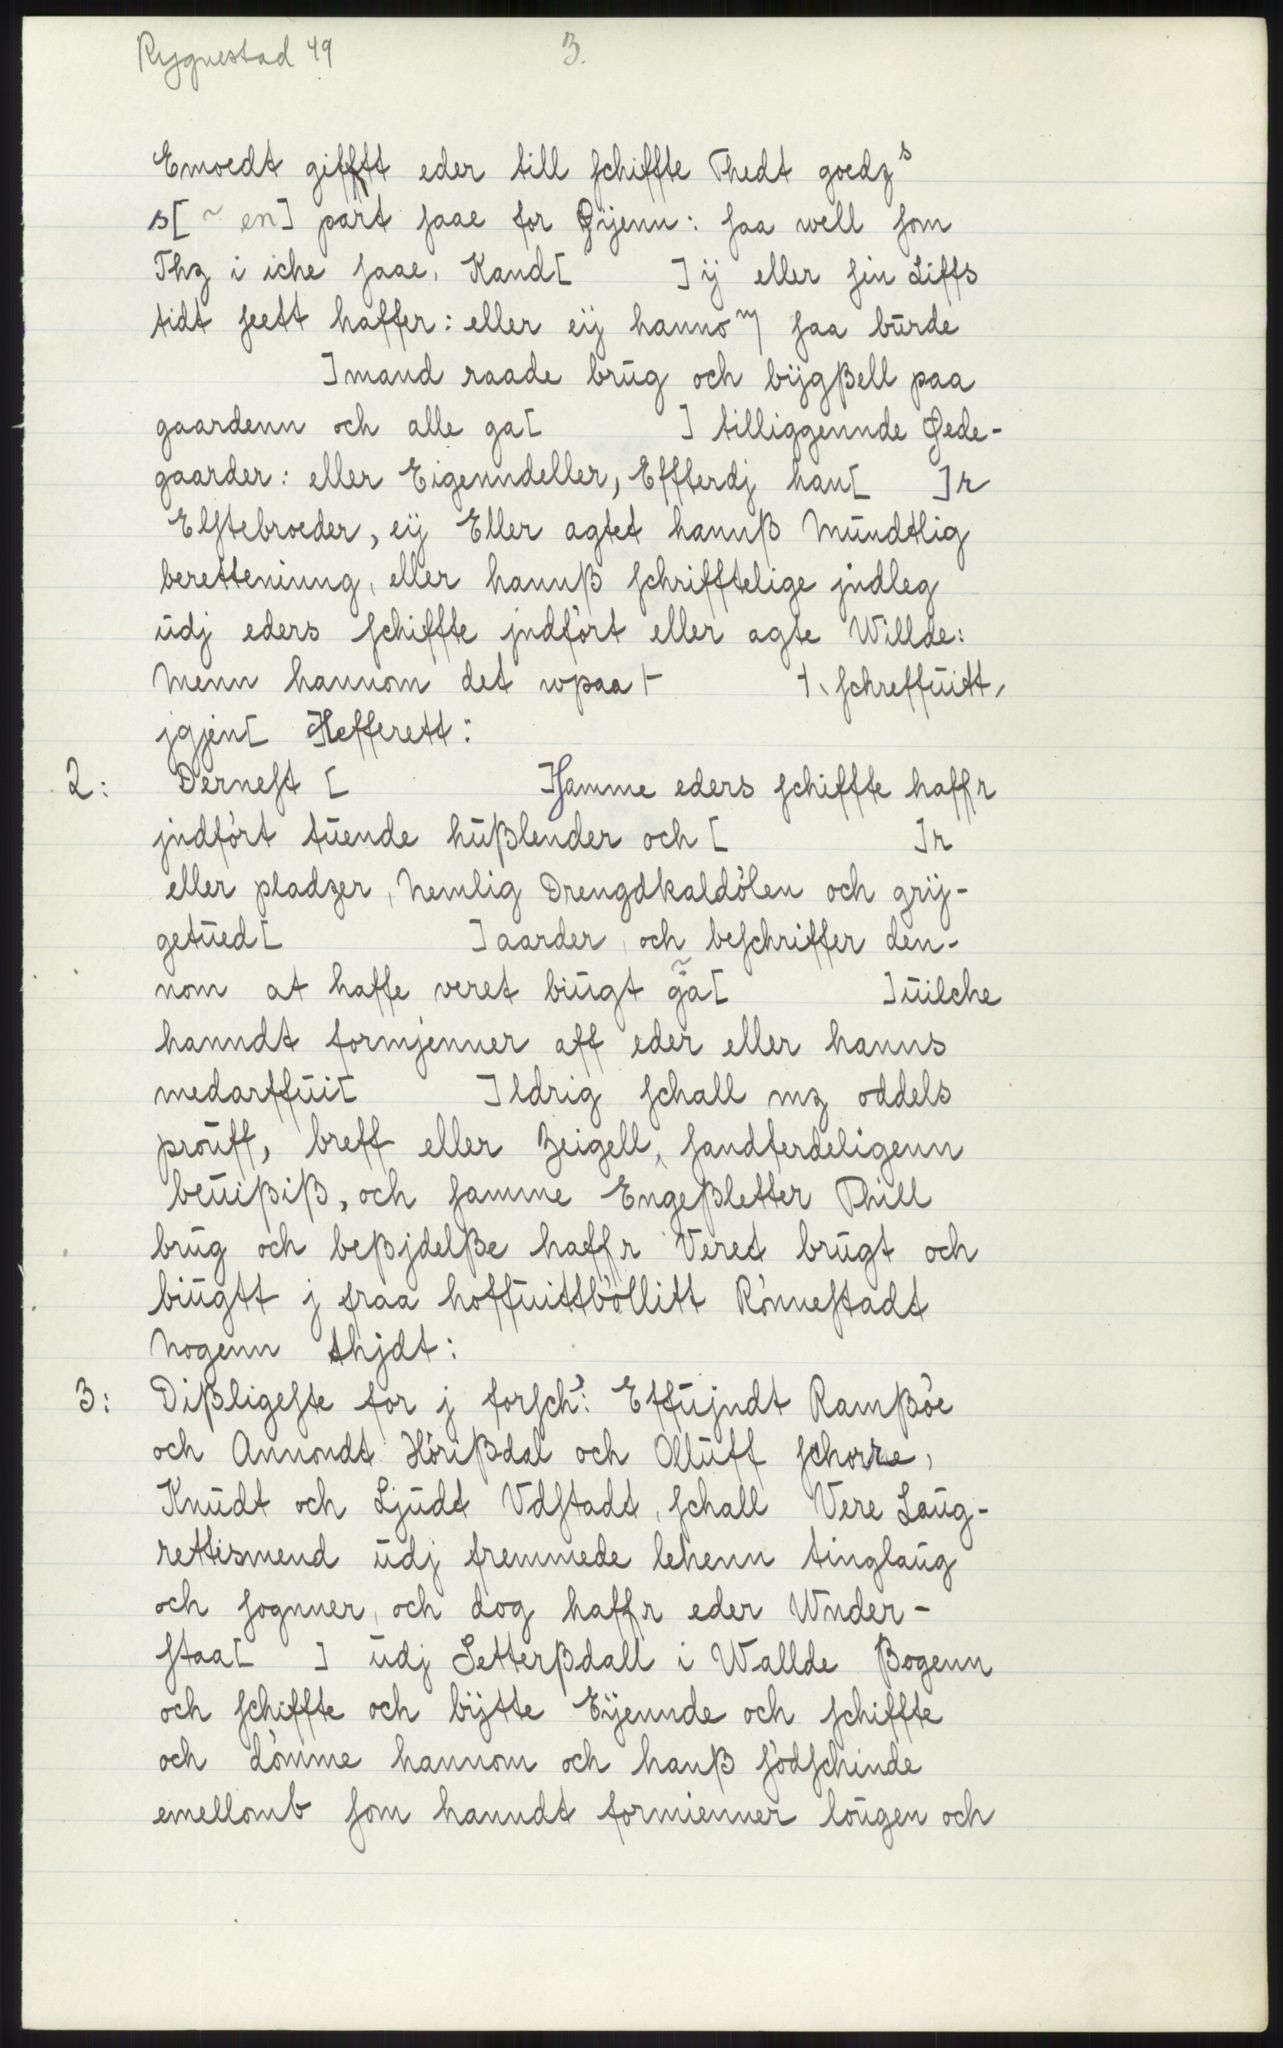 Rygnestad 49 3.
Emoedt gifftt eder till schiffte Thedt goedz s
s[ ~ en] part saae for Øijenn: saa well som
Thz i iche saae, Kand[ ] ij eller sin Liffs
tidt seett haffer: eller eij hannom saa bürde
]mand raade brüg och bijgßell paa
gaardenn och alle ga[ ] tilliggennde Øede-
gaarder: eller Eigenndeller, Effterdj han[ ]r
Elstebroeder, eij Eller agtet hannß Mündtlig
beretteniung, eller hannß schrifftelige jndleg
üdj eders schiffte jndfört eller agte Willde:
Menn hannom det wpaa[ ], schreffüitt,
jgjen[ ]Hefferett:
2: Dernest [ ]Samme eders schiffte haffr
jndfört tüende hüßlender och [ ]r
eller pladzer, Nemlig Drengdkaldölen och grij-
getüed[ ]aarder, och beschriffer den-
nom at haffe veret biügt ga[ ]üilche
hanndt formjenner aff eder eller hanns
medarffüi[ ]ldrig schall mz oddels
proüff, breff eller Zeigell, sandferdeligenn
beüißiß, och samme Engeßletter Thill
brüg och beßjdelße haffr Veret brügt och
biügtt j fraa hoffüittböllitt Rönnestadt
Nogenn thjdt:
3: Dißligeste for j forsch: Effüjndt Ramßöe
och Annondt Hörißdal och Ollüff schorre,
Knüdt och Ljüdt Vdstadt, schall Vere Laüg-
rettismend üdj fremmede lehenn tinglaüg
och sognner, och dog haffr eder Wnder-
staa[ ] üdj Setterßdall i Wallde Bogenn
och schiffte och bijtte Eijennde och schiffte
och dömme hannom och hanß södschinde
emellomb som hanndt formienner loügen och